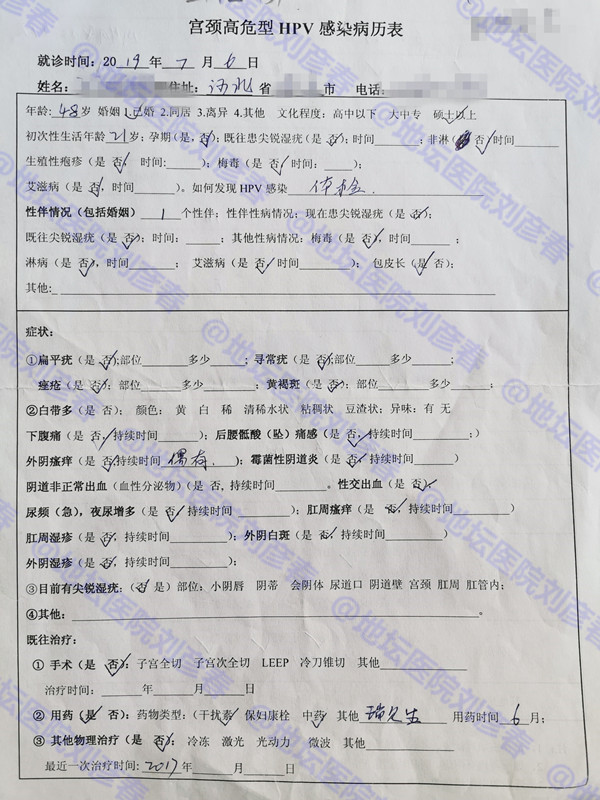 宫颈高危型 HPV 感染病历表
就诊时间：2019 年 7 月 6 日
姓名： 住址：河北 省 市 电话：
年龄：48岁 婚姻 1.已婚 2.同居 3.离异 4.其他 文化程度：高中以下 大中专 硕士以上
初次性生活年龄 21岁；孕期（是，否）；既往患尖锐湿疣（是 否）；时间 ；非淋（ 否）时间
生殖性疱疹（是 否） 时间： ）；梅毒（是 否 时间： ）；
艾滋病（是 否，时间 ）。如何发现 HPV 感染 体检.
性伴情况（包括婚姻） 1 个性伴；性伴性病情况：现在患尖锐湿疣（是 否）；
既往尖锐湿疣（是 否）；时间： ；其他性病情况：梅毒（是 否），时间 ；
淋病（是 否），时间 ； 艾滋病（是 否，时间 ）； 包皮长（是 否）；
其他：
症状：
①扁平疣（是 否）；部位 多少 ；寻常疣（是 否）；部位 多少 ；
痤疮（是 否）；部位 多少 ；黄褐斑（是 否）；部位 多少 ；
②白带多（是 否）； 颜色： 黄 白 稀 清稀水状 粘稠状 豆渣状；异味：有 无
下腹痛（是 否，持续时间 ）；后腰骶酸（坠）痛感（是 否，持续时间 ；）
外阴瘙痒（是 否，持续时间 偶有. ）；霉菌性阴道炎（是 否，持续时间 ）
阴道非正常出血（血性分泌物）（是 否，持续时间 。性交出血（是 否）；
尿频（急），夜尿增多（是 否，持续时间 ）；肛周瘙痒（是 否，持续时间 ）
肛周湿疹（是 否，持续时间 ）；外阴白斑（是 否，持续时间 ）
外阴湿疹（是 否，持续时间 ）；
③目前有尖锐湿疣：（否 是）部位：小阴唇 阴蒂 会阴体 尿道口 阴道壁 宫颈 肛周 肛管内；
④其他： 。
既往治疗：
① 手术（是 否）：子宫全切 子宫次全切 LEEP 冷刀锥切 其他
治疗时间： 年 月 日
② 用药（是 否）：药物类型：（干扰素 保妇康栓 中药 其他 用药时间 6 月；
③ 其他物理治疗（是 否）：冷冻 激光 光动力 微波 其他
最近一次治疗时间：2017年 月 日
@地坛医院刘彦春